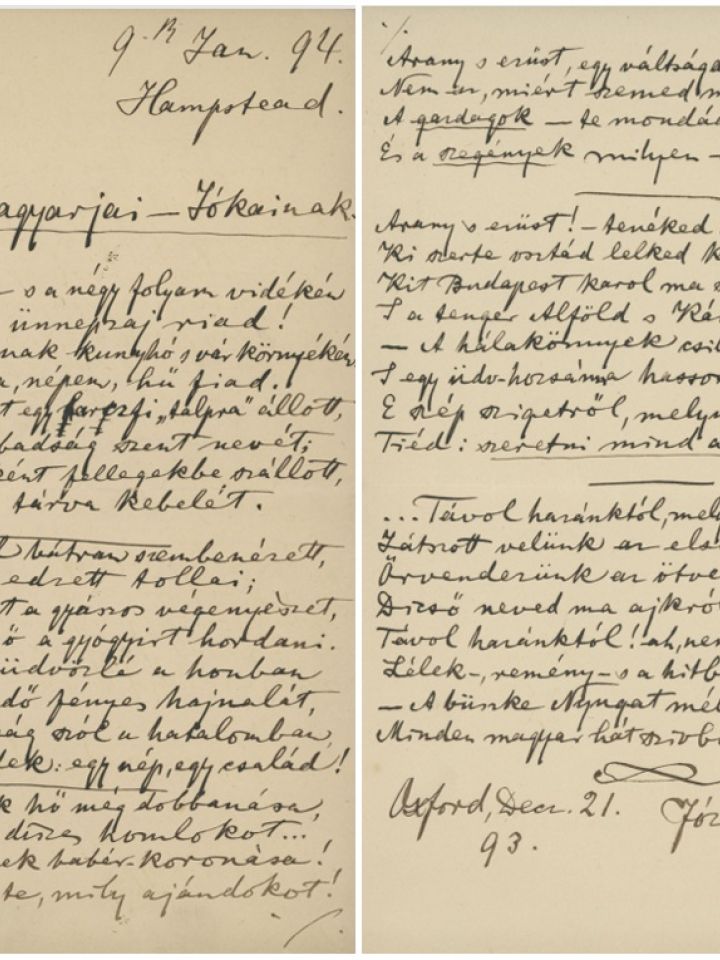 9.th Jan. 94.
Hampstead.
agyarjai – Jókainak.
– s a négy folyam vidékén
ünnepzaj riad!
nak kunyhó s vár környékén
a, népem, hű fiad.
t egy „talpra” állott,
badság szent nevét;
ként fellegekbe szállott,
tárva kebelét.
bátran szembenézett,
edzett tollai;
t a gyászos végenyészet,
ő a gyógyirt hordani.
üdvözlé a honban
dő fényes hajnalát,
ág szól a hatalomban,
dek: egy nép, egy család!
k hő még dobbanása,
díszes homlokot...
ek babér-koronása!
te, mily ajándokot!
./.
./.
Arany s ezüst, egy váltsága
Nem az, miért szemed m
A gazdagok – te mondád
És a szegények milyen –
Arany s ezüst! – tenéked
Ki szerte osztád lelked k
Kit Budapest karol ma
S a tenger Alföld s Ká
– A hálakönnyek csil
S egy üdv-hozsánna hasso
E szép szigetről, melyn
Tiéd: szeretni mind a
...Távol hazánktól, mel
Játszott velünk az els
Örvendezünk az ötve
Dicső neved ma ajkró
Távol hazánktól! ah, ne
Lélek-, remény- s a hitb
– A büszke Nyugat mél
Minden magyar hát szivb
Oxford, Decz. 21.
93.
Józ